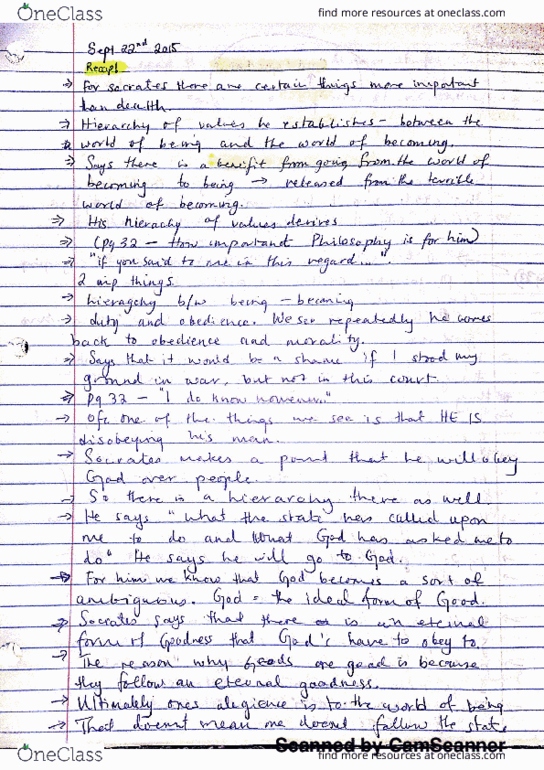 OneClass
find more resources at oneclass.com
Sept 22nd 2015
Recap!
→ For socrates there are certain things more important
than death.
→ Hierarchy of values he establishes - between the
world of being and the world of becoming.
→ Says there is a benifit from going from the world of
becoming to being → released from the terrible
world of becoming.
→ His hierachy of values derives
→ (pg 32 - How important Philosophy is for him)
→ "if you said to me in this regard..."
2 imp things
→ hieragchy b/w being - becoming
→ duty and obedience. We see repeatedly he comes
back to obedience and morality.
→ Says that it would be a shame if I stood my
ground in war, but not in this court
→ Pg 32 - "I do know however"
→ Ofc one of the things we see is that HE IS
disobeying his man.
→ Socrates makes a point that he will obey
God over people.
→ So there is a hierarchy there as well.
→ He says "what the state has called upon
me to do and what God has asked me to
do" He says he will go to God.
→ For him we know that God becomes a sort of
ambiguous. God = the ideal form of Good.
→ Socrates says that there is an eternal
form of Goodness that God's have to obey to.
→ The reason why Gods are good is because
they follow an eternal goodness.
→ Ultimately ones alegience is to the world of being
→ That doesnt mean one doesnt follow the state
Scanned by CamScanner
OneClass
find more resources at oneclass.com